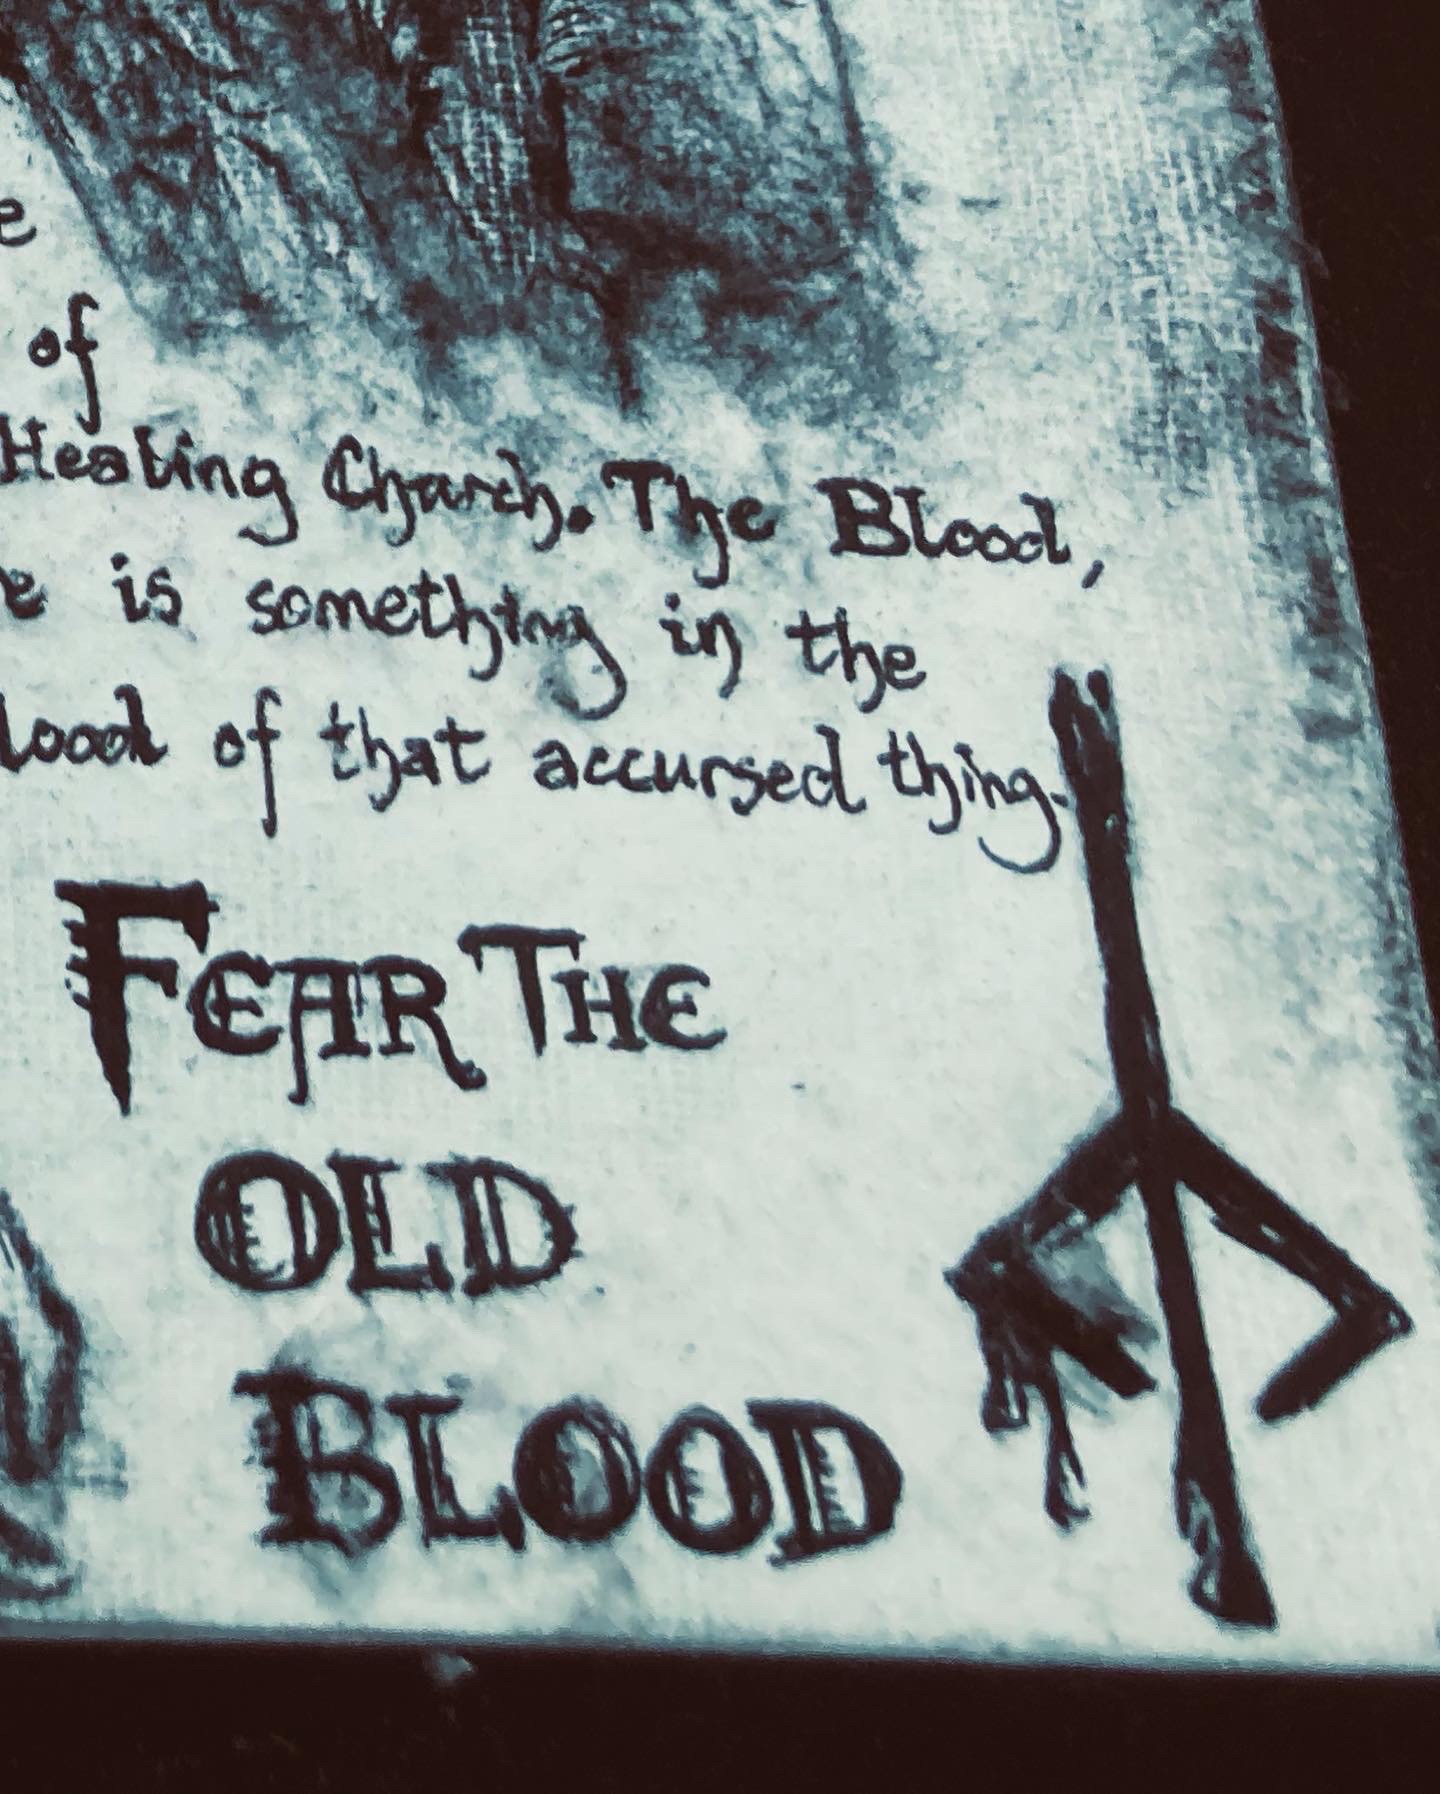 e
of
Healing Church. The Blood,
e is something in the
lood of that accursed thing.
FEAR THE
OLD
BLOOD